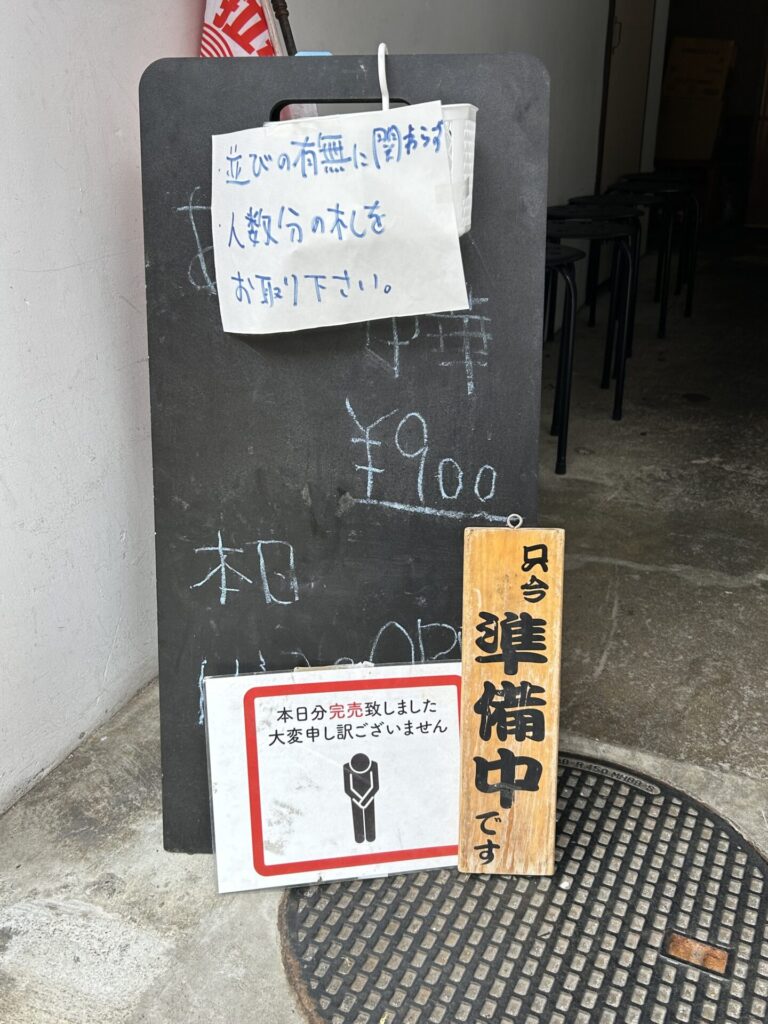 並びの有無に関わらず
人数分の札を
お取り下さい。
中華
¥900
本日
本日分完売致しました
大変申し訳ございません
只今
準備中
です